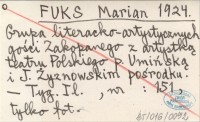 FUKS Marian 1924.
Grupa literacko-artystycznych
gości Zakopanego z artystką
teatru Polskiego p. Umińską
i J. Żyznowskim pośrodku.
— Tyg. Il. , nr : 151,
tylko fot.
bT/016/0092